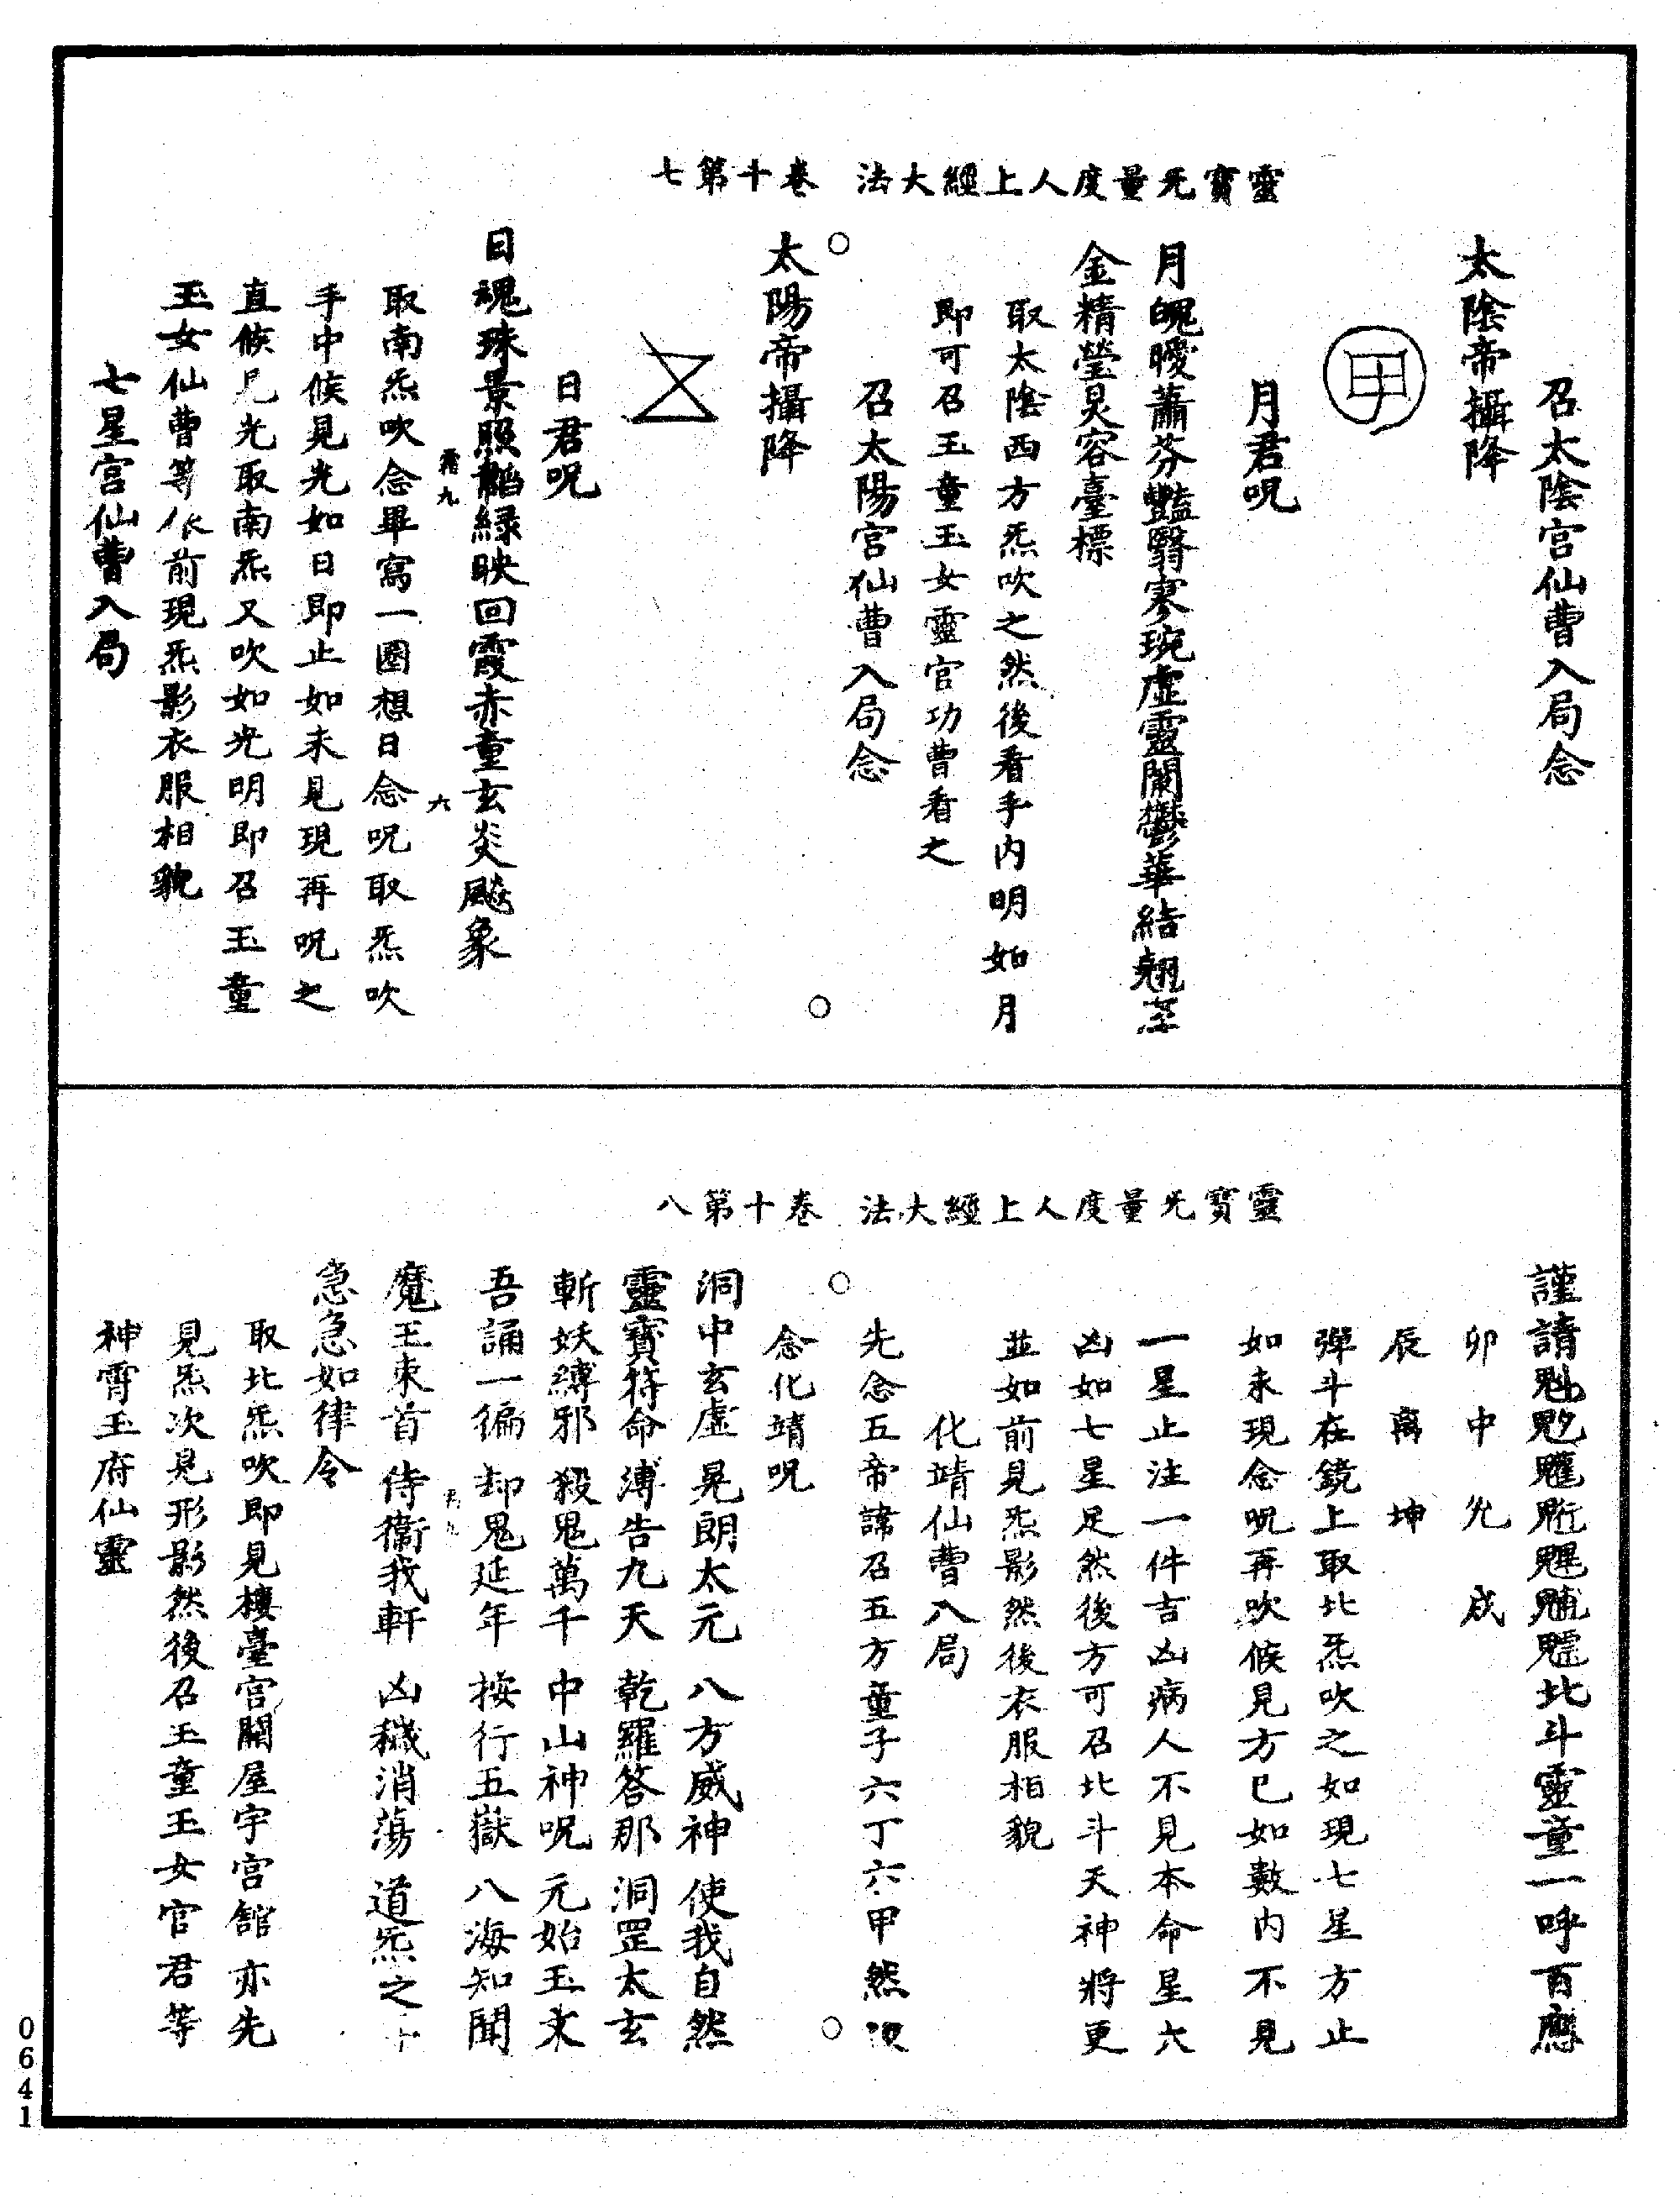 靈寶无量度人上經大法　卷十第七
召太陰宮仙曹入局念
太陰帝攝降
月君呪
月魄曖蕭芬豔翳寒琬虛靈闌鬱華結翹
金精瑩炅容臺標
取太陰西方炁吹之然後看手內明如月
即可召玉童玉女靈官功曹看之
召太陽宮仙曹入局念
太陽帝攝降
日君呪
日魂珠景照韜綠映回霞赤童玄炎飈象
九　六
取南炁吹念畢寫一圈想日念呪取炁吹
手中候見光如日即止如未見現再呪之
直候見光取南炁又吹如光明即召玉童
玉女仙曹等依前現炁影衣服相貌
七星宮仙曹入局
靈寶无量度人上經大法　卷十第八
謹請魁䰢䰡魓䰧北斗靈童一呼百應
卯　中　戌
辰　离　坤
彈斗在鏡上取北炁吹之如現七星方止
如未現念呪再吹候見方已如數內不見
一星止注一件吉凶病人不見本命星大
凶如七星足然後方可召北斗天神將更
並如前見炁影然後衣服相貌
化靖仙曹入局
先念五帝諱召五方童子六丁六甲然後
念化靖呪
洞中玄虛　晃朗太元　八方威神　使我自然
靈寶符命　溥告九天　乾羅答那　洞罡太玄
斬妖縛邪　殺鬼萬千　中山神呪　元始玉文
吾誦一徧　却鬼延年　按行五嶽　八海知聞
魔王束首　侍衛我軒　凶穢消蕩　道炁之
急急如律令
取北炁吹即見樓臺宮闕屋宇宮舘亦先
見炁次見形影然後召玉童玉女官君等
神霄玉府仙靈
0641